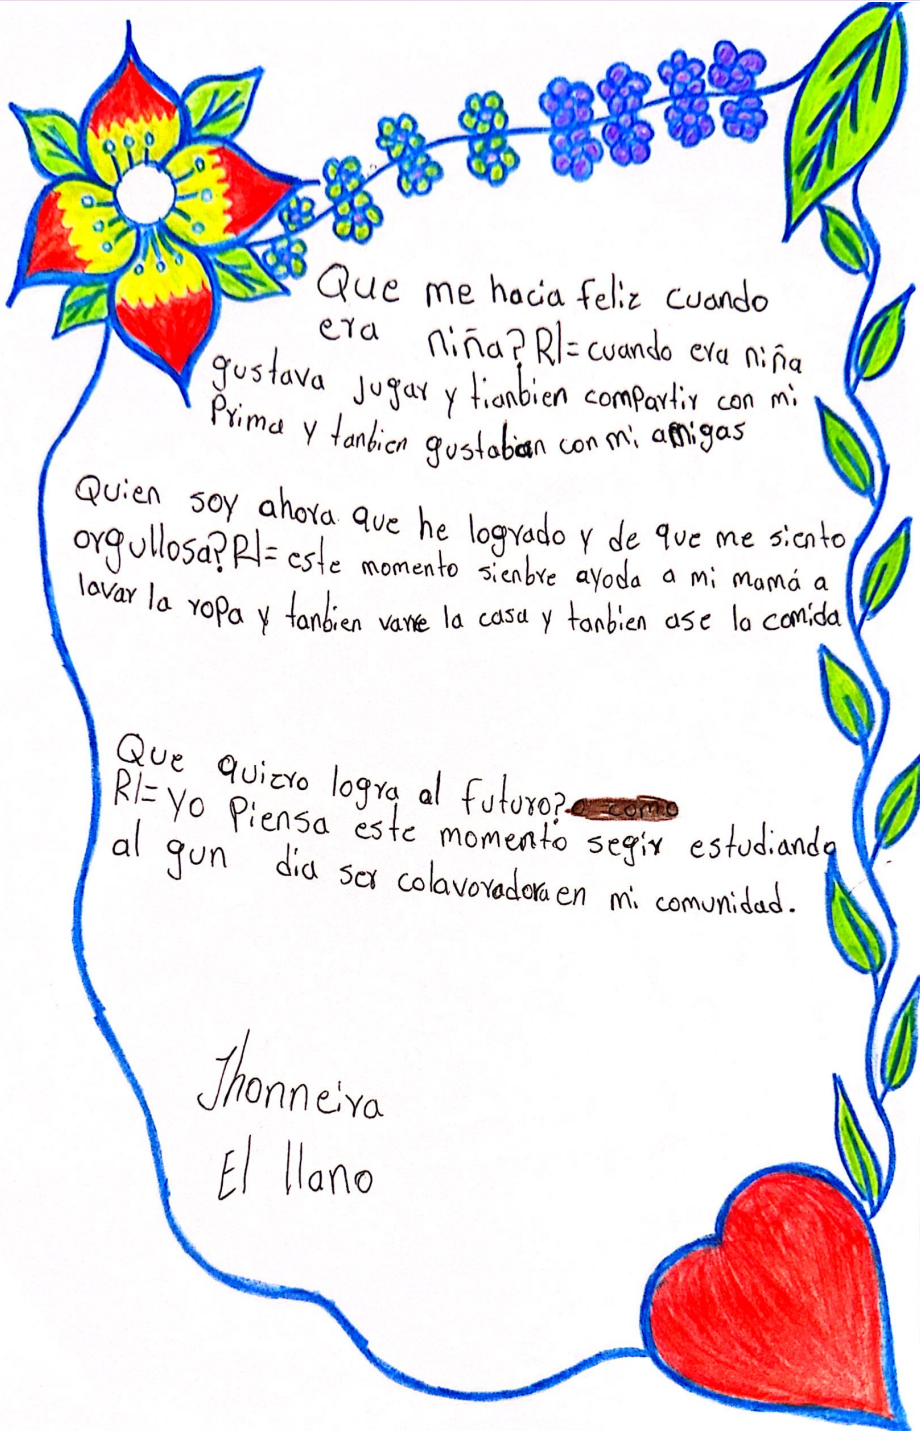 Que me hacia feliz cuando
era niña? R/= cuando era niña
gustava jugar y tianbien compartir con mi
Prima y tanbien gustaban con mi amigas
Quien soy ahora que he logrado y de que me siento
orgullosa? R/= este momento sienbre ayoda a mi mamá a
lavar la ropa y tanbien varre la casa y tanbien ase la comida
Que quiero logra al futuro? como
R/= yo Piensa este momento segir estudiando
al gun dia ser colavoradora en mi comunidad.
Jhonneira
El llano